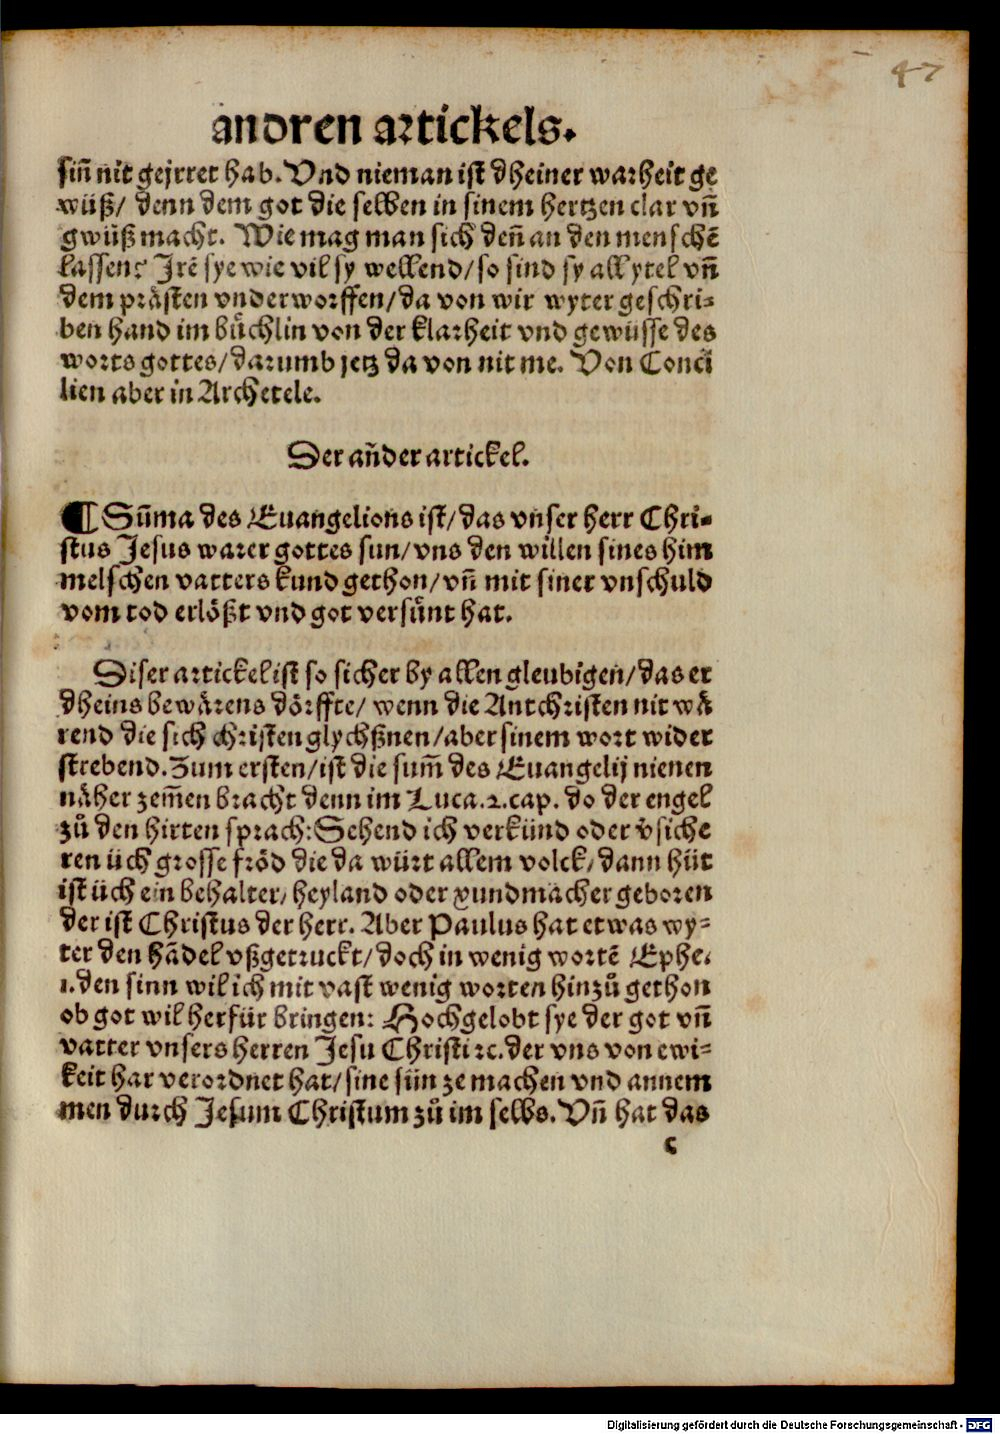 47
andren artickels.
siñ nit gejrret hab. Vnd nieman ist dheiner warheit ge
wüß/ denn dem got die selben in sinem hertzen clar vñ
gwüß macht. Wie mag man sich deñ an den menschē
lassen? Jrē sye wie vil sy wellend/ so sind sy all ytel vñ
dem prästen vnderworffen/ da von wir wyter geschri⸗
ben hand im bůchlin von der klarheit vnd gewüsse des
worts gottes/ darumb jetz da von nit me. Von Conci
lien aber in Archetele.
Der añder artickel.
¶ Sūma des Euangelions ist/ das vnser herr Chri⸗
stus Jesus warer gottes sun/ vns den willen sines him
melschen vatters kund gethon/ vñ mit siner vnschuld
vom tod erlößt vnd got versünt hat.
Diser artickel ist so sicher by allen gleubigen/ das er
dheins bewärens dörffte/ wenn die Antchristen nit wä
rend die sich christen glychßnen/ aber sinem wort wider
strebend. Zum ersten/ ist die sum̄ des Euangelij nienen
näher zem̄en bracht denn im Luca. 2. cap. do der engel
zů den hirten sprach: Sehend ich verkünd oder v̊siche
ren üch grosse fröd die da würt allem volck/ dann hüt
ist üch ein behalter/ heyland oder gundmacher geboren
der ist Christus der herr. Aber Paulus hat etwas wy⸗
ter den hādel vßgetruckt/ doch in wenig wortē Ephe.
1. den sinn wil ich mit vast wenig worten hinzů gethon
ob got wil herfür bringen: Hochgelobt sye der got vñ
vatter vnsers herren Jesu Christi ꝛc. der vns von ewi⸗
keit har verordnet hat/ sine sün ze machen vnd annem
men durch Jesum Christum zů im selbs. Vñ hat das
c
Digitalisierung gefördert durch die Deutsche Forschungsgemeinschaft - DFG